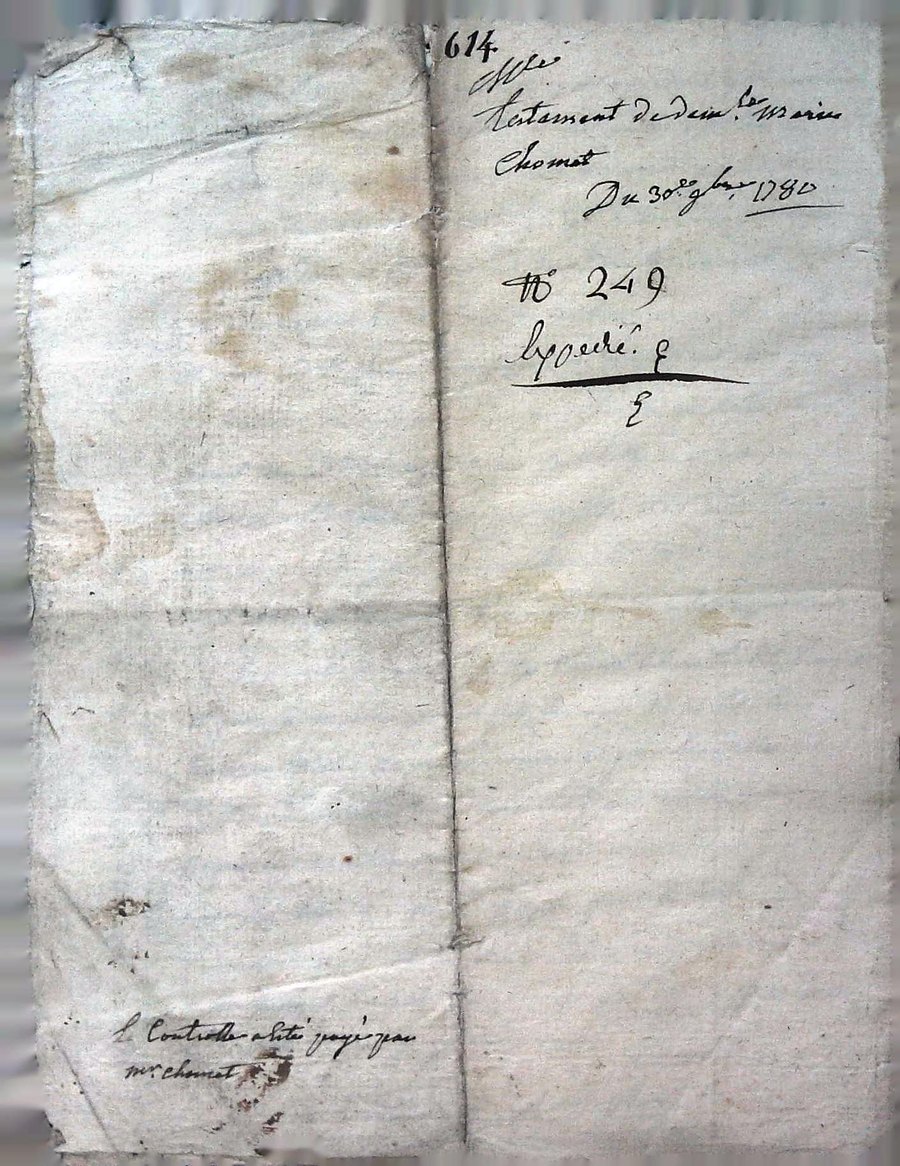 614.
testament de dem.lle marie
Chomet
Du 30e 9bre 1780
N° 249
Expedié.
le Controlle a été payé par
mr. chomet